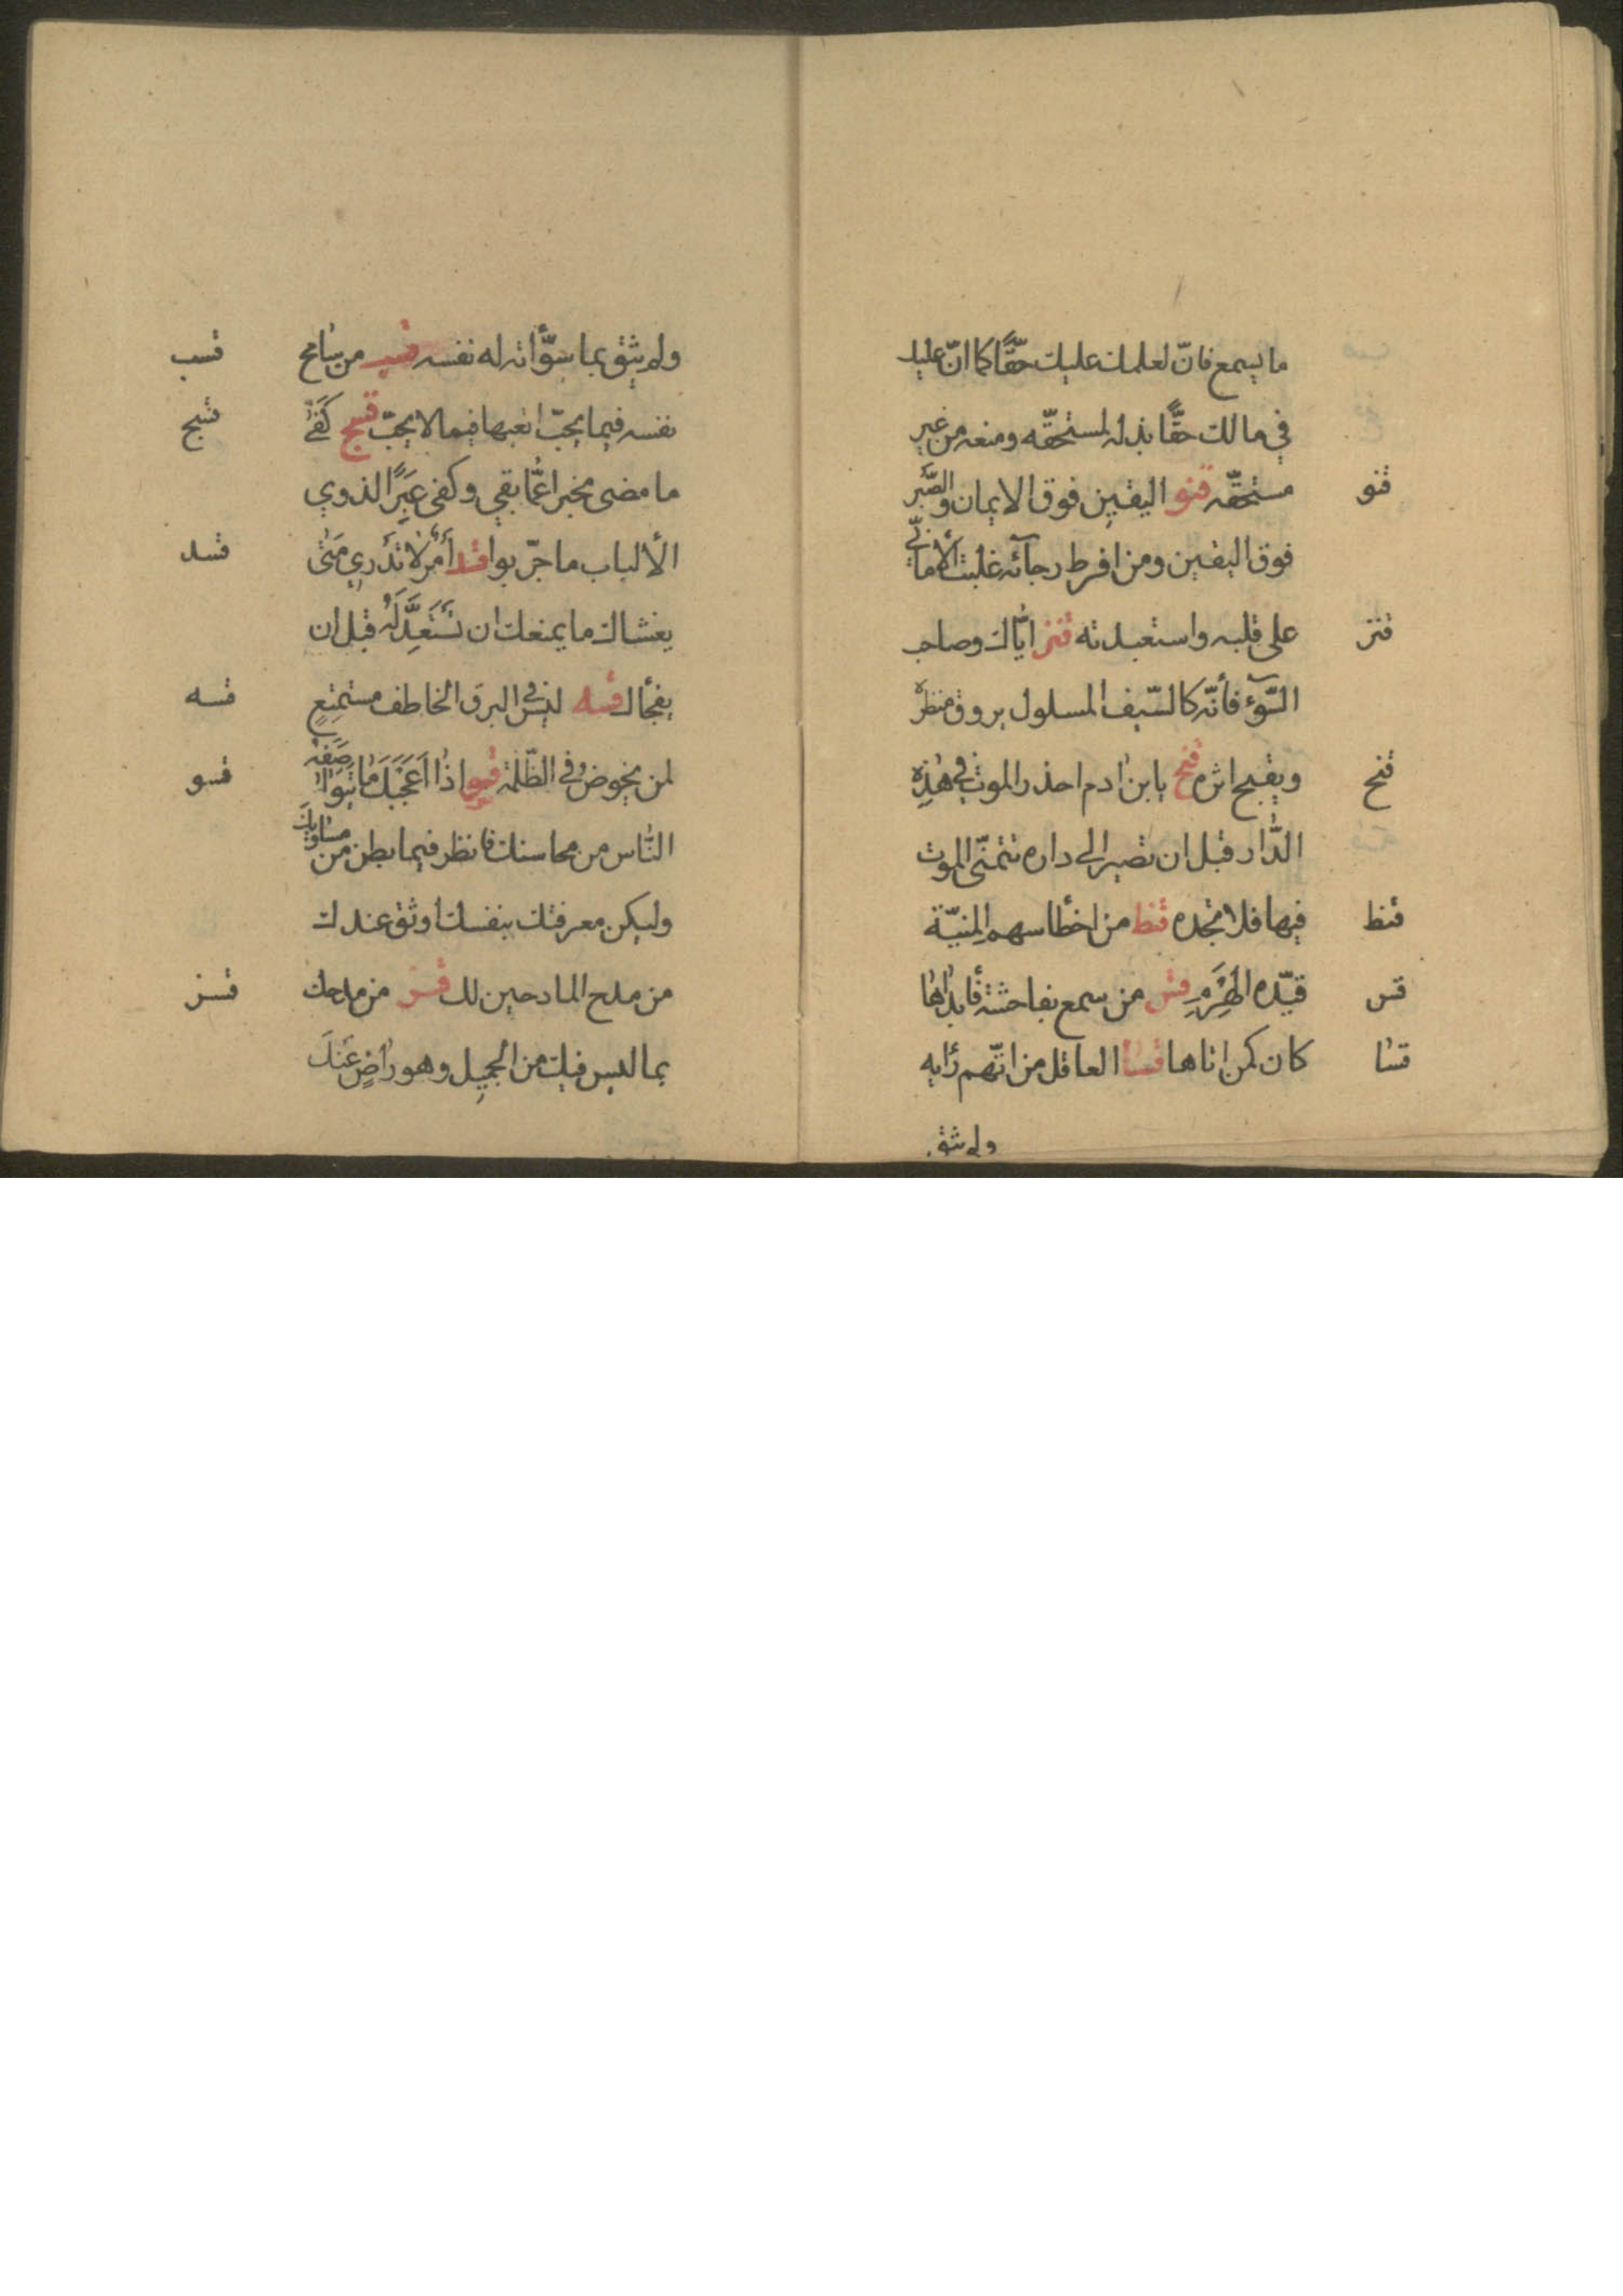 ما يسمع فانّ لعلمك عليك حقًّا كما انّ عليك
في مالك حقًّا بذله لمستحقّه ومنعه من غير
قنو مستحقّه قنو اليقين فوق الايمان والصّبر
فوق اليقين ومن افرط رجآئه غلبت الأمانّي
قنز على قلبه واستعبدته قنز ايّاك وصاحب
السّوء فأنّه كالسّيف المسلول يروق منظره
قنح ويقبح اثره قنح يابن ادم احذر الموت في هٰذه
الدّار قبل ان تصير الى داره تتمنّى الموت
قنط فيها فلا تجده قنط من اخطأ سهم المنيّة
قس قيّده الهَرَمِ قس من سمع بفاحشة فأبداها
قسا كان كمن اتاها قسا العاقل من اتّهم رأيه
ولم يثق
قسب ولم يثق بما سوّاته له نفسه قسب من سامح
قسج نفسه فيما يحبّ اتعبها فيما لا يحبّ قسج كَفىٰ
ما مضى مخبرا عمّا بقي وكفى عِبَرًا لذوي
قسد الألباب ما جرّبوا قسد أَمْرٌ لا تَدْري مَتىٰ
يغشاك ما يمنعك ان تَسْتَعِدَّ لَهُ قبل ان
قسه يفجأك قسه ليس في البرق الخاطف مستمتِعٍ
قسو لمن يخوض في الظّلمة قسو اذا اَعْجَبَكَ ما يتواصَفه
النّاس من محاسنك فانظر فيما بطن من مساويك
وليكن معرفتك بنفسك اوثق عندك
قسز من مدح المادحين لك قسز من مدحك
بما ليس فيك من الجميل وهو راضٍ عَنْكَ